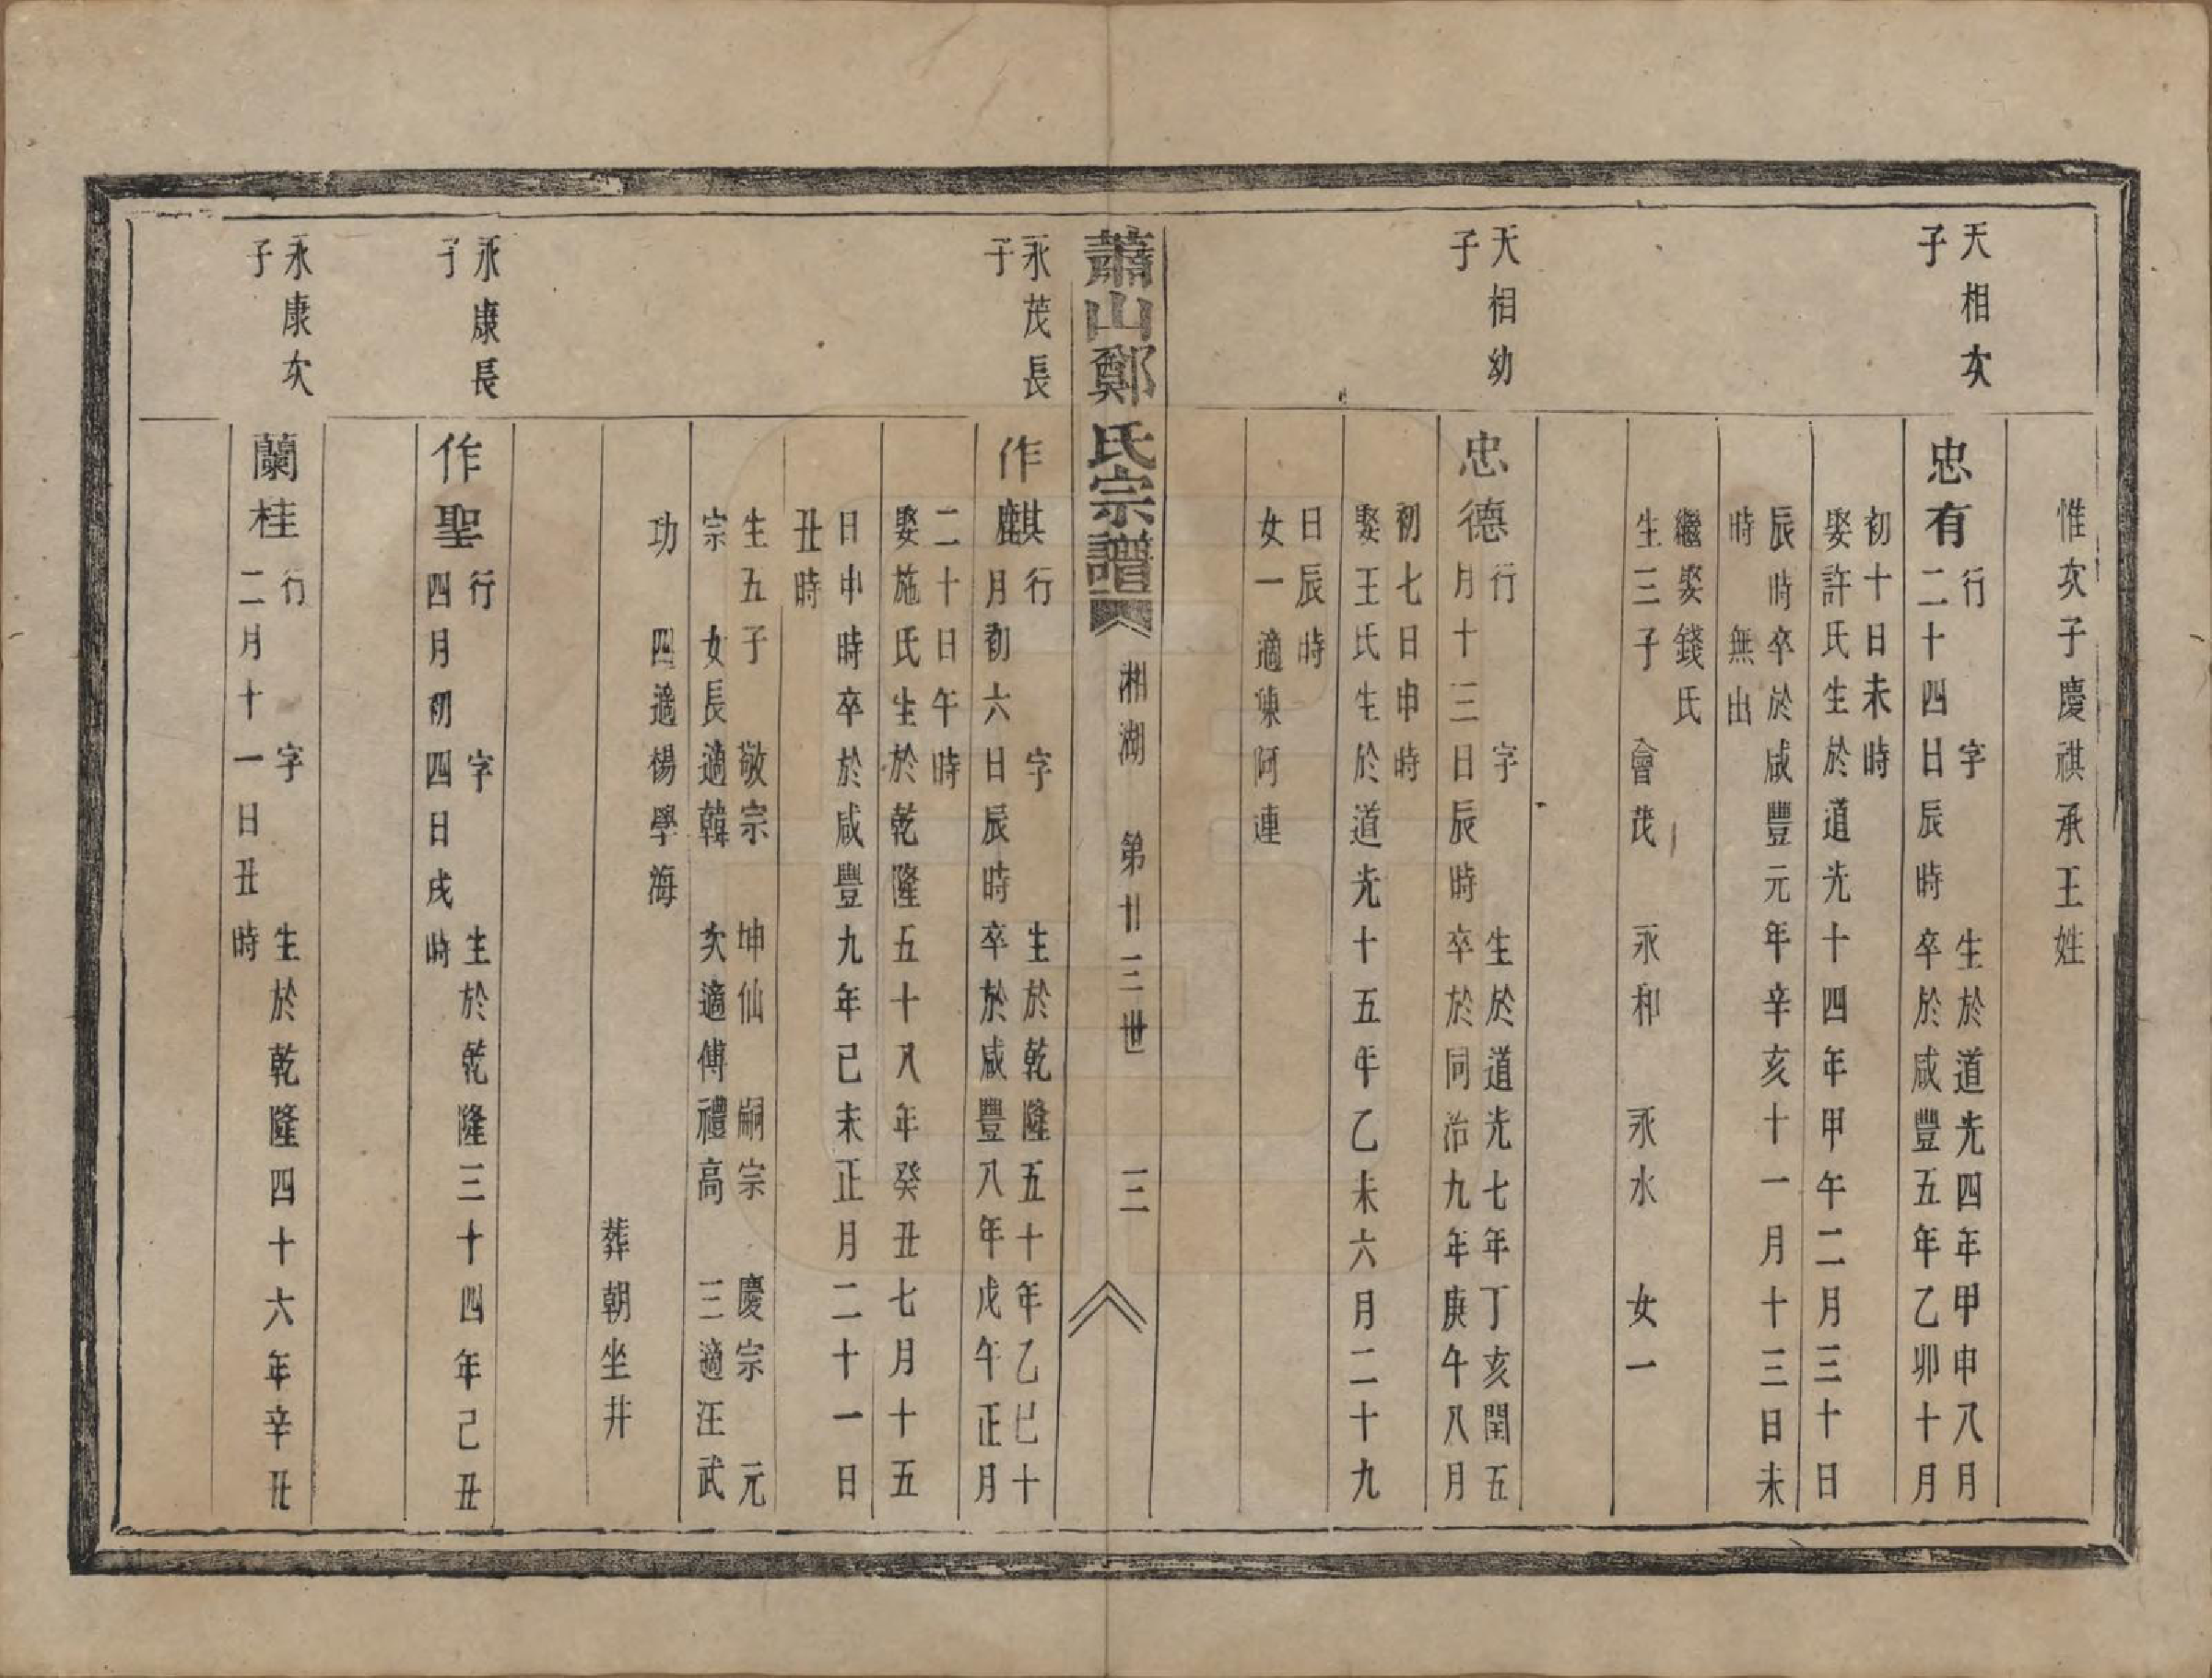 惟次子慶祺承王姓
天相次
子
忠有
行　字　生於道光四年甲申八月
二十四日辰時卒於咸豐五年乙卯十月
初十日未時
娶許氏生於道光十四年甲午二月三十日
辰時卒於咸豐元年辛亥十一月十三日未
時　無出
繼娶錢氏
生三子　會茂　永和　永水　女一
天相幼
子
忠德
行　字　生於道光七年丁亥閏五
月十三日辰時卒於同治九年庚午八月
初七日申時
娶王氏生於道光十五年乙未六月二十九
日辰時
女一適陳阿連
蕭山鄭氏宗譜　湘湖　第廿三世　三
永茂長
子
作麒
行　字　生於乾隆五十年乙巳十
月初六日辰時卒於咸豐八年戊午正月
二十日午時
娶施氏生於乾隆五十八年癸丑七月十五
日申時卒於咸豐九年己未正月二十一日
丑時
生五子　敬宗　坤仙　嗣宗　慶宗　元
宗　女長適韓　次適傅禮高　三適汪武
功　四適楊學海
葬朝坐井
永康長
子
作聖
行　字　生於乾隆三十四年己丑
四月初四日戌時
永康次
子
蘭桂
行　字　生於乾隆四十六年辛丑
二月十一日丑時